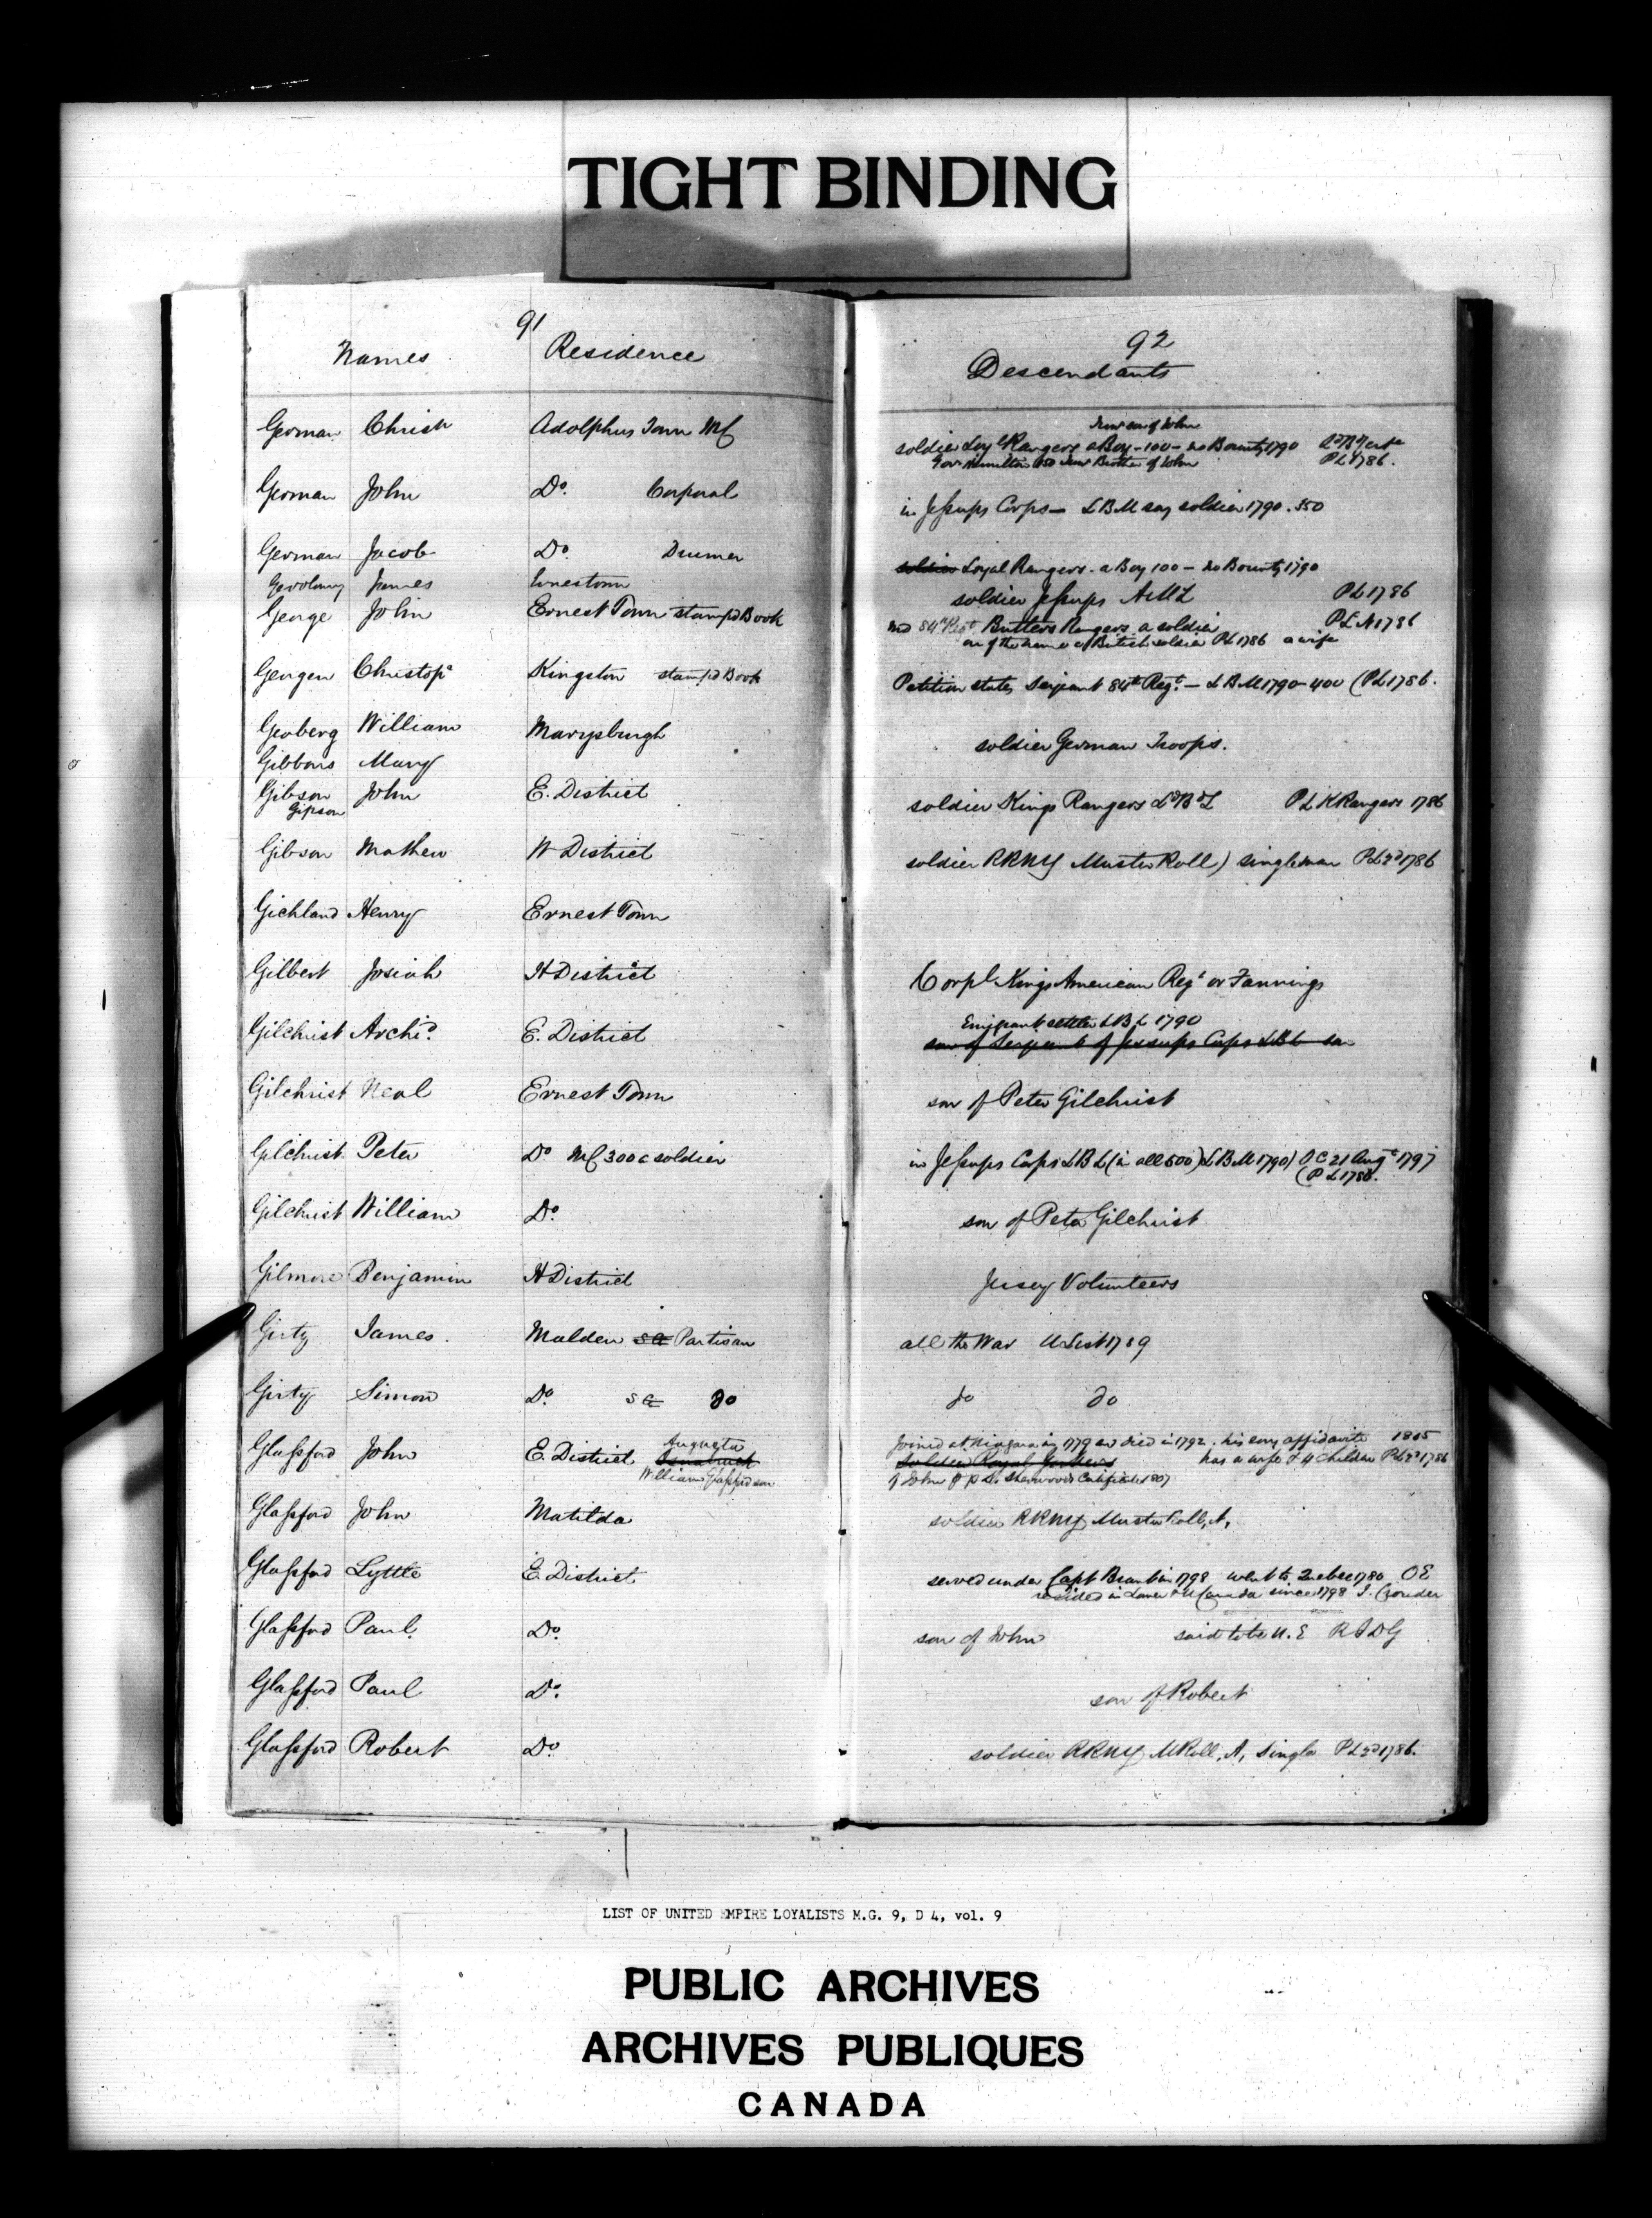 TIGHT BINDING
91
Names Residence
German Christ Adolphus Town MC
German John Do. Corporal
German Jacob Do. Drumer
James Ernestown
George John Ernest Town stampd Book
Georgen Christopr Kingston stampd Book
Geoberg William Marysburgh
Gibbons Mary
Gibson John E. District
Gipson
Gibson Mathew W District
Gichland Henry Ernest Town
Gilbert Josiah H District
Gilchrist Archd. E. District
Gilchrist Neal Ernest Town
Gilchrist Peter Do MC 300 a soldier
Gilchrist William Do.
Gilmore Benjamin H District
Girty James Malden sa Partisan
Girty Simon Do. sa do
Augusta
Glassford John E. District Osnabruck
William Glassford son
Glassford John Matilda
Glassford Lyttle E. District
Glassford Paul Do.
Glassford Paul Do.
Glassford Robert Do.
92
Descendants
son of John
soldier Loyl Rangers a Boy - 100 - no Bounty 1790
Gov Hamilton 150 Brother of John PL 1786.
in Jessups Corps - LBM say soldier 1790. 350
soldier Loyal Rangers. a Boy 100 - no Bounty 1790
soldier Jessups AML PL 1786
84th Regt Butlers Rangers a soldier PLN 1786
on of the name of British soldier PL 1786 a wife
Petition states Serjeant 84th Regt. - LBM 1790 - 400 (PL 1786.
soldier German Troops.
soldier Kings Rangers LBL PL K Rangers 1786
soldier RRNY Muster Roll) single man PL 2d 1786
Corpl Kings American Regt or Fannings
Emigrant settler LBL 1790
son of Serjeant of Jessups Corps LBL
son of Peter Gilchrist
in Jessups Corps LBL (in all 500) LBM 1790) OC 21 Augt 1797
(PL 1786.
son of Peter Gilchrist
Jersey Volunteers
all the War U List 1789
do do
Joined at Niagara in 1779 died in 1792. his affidavits 1805
soldier Royal Yorkers has a wife & 4 Children PL 2d 1786
of John Sherwoods Certificate 1807
soldier RRNY Muster Roll, A,
served under Capt Brant in 1798 went to Quebec 1780 OE
resided in Lower & U Canada since 1798 J. Crouder
son of John said to be U.E RIDG
son of Robert
soldier RRNY M Roll, A, Single PL 2d 1786.
LIST OF UNITED EMPIRE LOYALISTS M.G. 9, D 4, vol. 9
PUBLIC ARCHIVES
ARCHIVES PUBLIQUES
CANADA